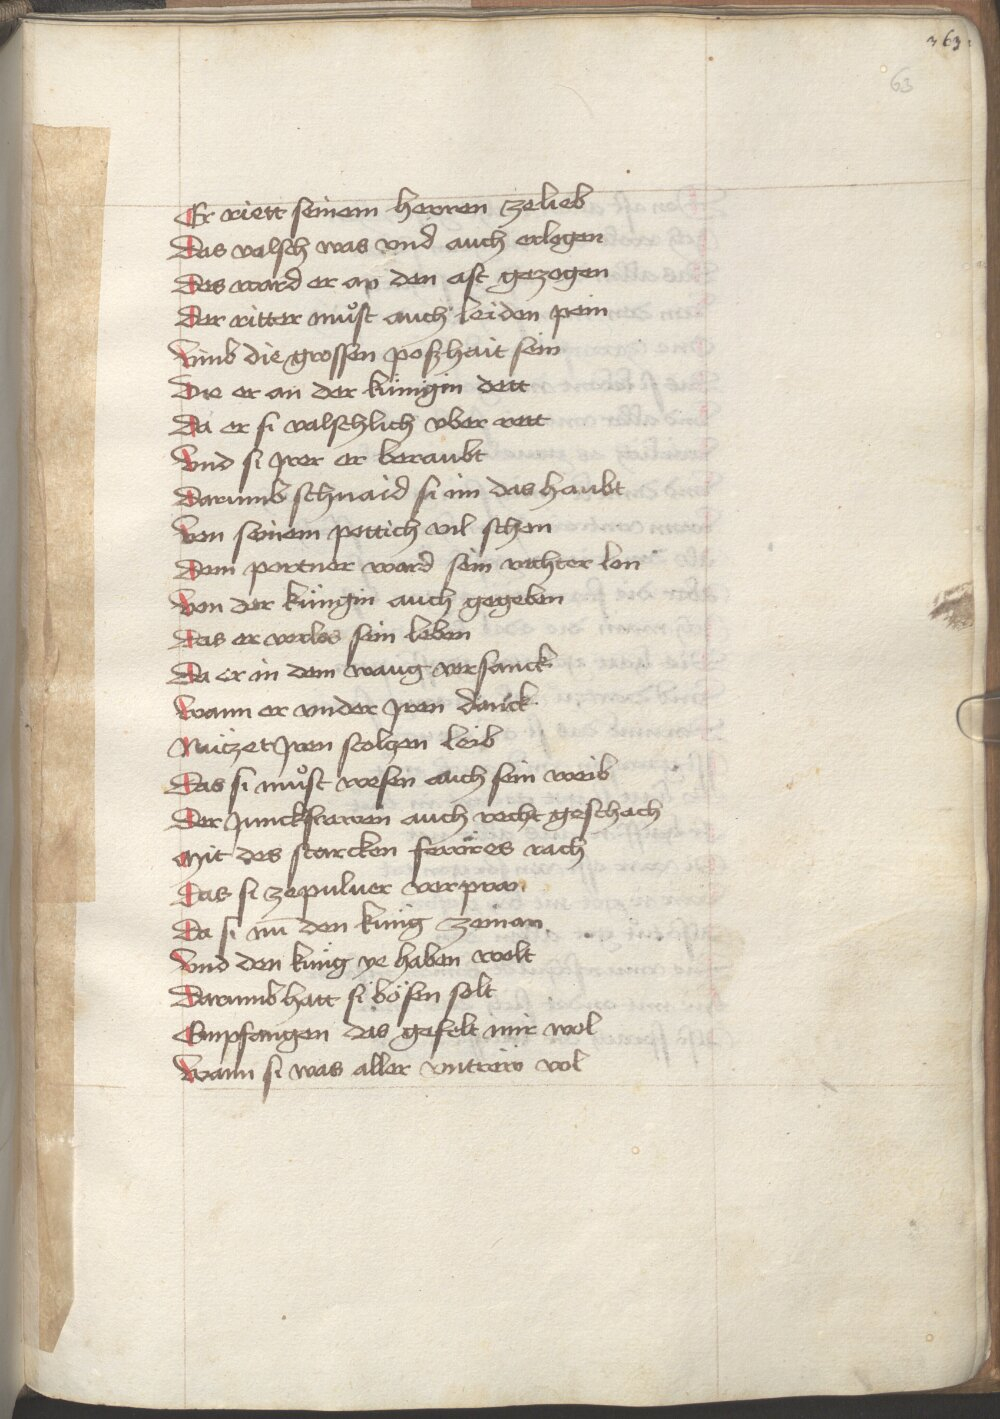 363
63
Er riett seinem herren zelieb
Das valsch was vnd auch erlogen
Des ward er an den ast gezogen
Der ritter muͦst auch leiden pein
Vmb die grossen poszhait sein
Die er an der künigin dett
Da er si valschlich vber rett
Vnd si jrer er beraubt
Darumb schnaid si im das haubt
Von seinem pottich vil schon
Dem portner ward sein rechter lon
Von der küngin auch gegeben
Das er verlos sein leben
Da er in dem waug versanck
Wann er vnder jren danck
Nützet jren stolzen leib
Das si muͦst wesen auch sein weib
Der junckfrawen auch recht geschach
Mit des starcken fewres rach
Das si zepuluer verpran
Da si nu̅ den künig zeman
Vnd den küng ye haben wolt
Darumb hatt si bösen solt
Empfangen das gefelt mir wol
Wann si was aller vntrew vol